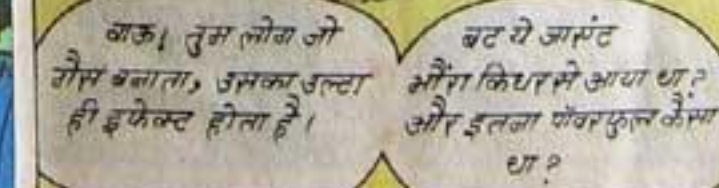 वाऊ! तुम लोग जो
गैस बनाता, उसका उल्टा
ही इफेक्ट होता है।
बट ये जायंट
भौंरा किधर से आया था?
और इतना पॅावरफुल कैसा
था?